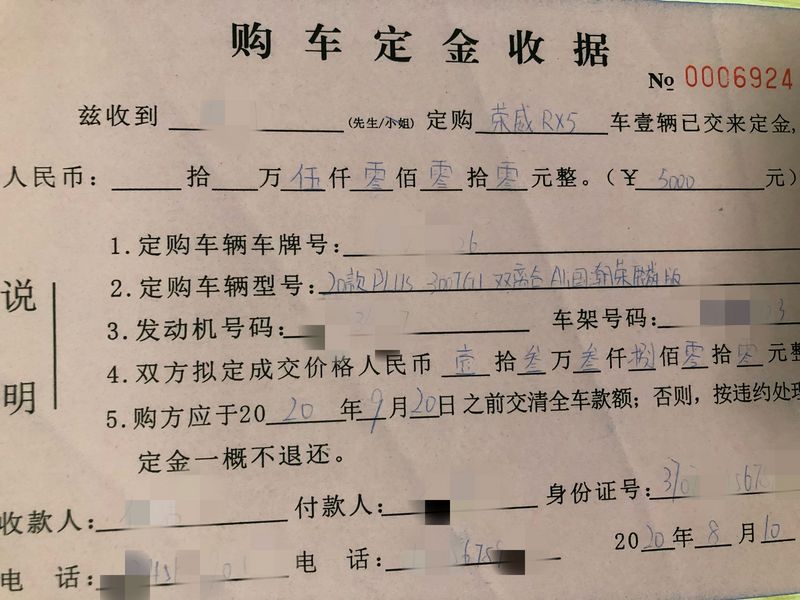 购车定金收据
№ 0006924
兹收到 (先生/小姐) 定购 荣威RX5 车壹辆已交来定金,
人民币: 拾 万 伍 仟 零 佰 零 拾 零 元整。(¥ 5000 元)
说明
1.定购车辆车牌号: 26
2.定购车辆型号: 20款PLUS 300TGI 双离合 Ai国潮荣麟版
3.发动机号码: 车架号码: 3
4.双方拟定成交价格人民币 壹 拾 叁 万 叁 仟 捌 佰 零 拾 零 元整
5.购方应于2020年9月20日之前交清全车款额;否则,按违约处理
定金一概不退还。
收款人: 付款人: 身份证号: 370 567
电 话: 电 话: 5675 2020年8月10